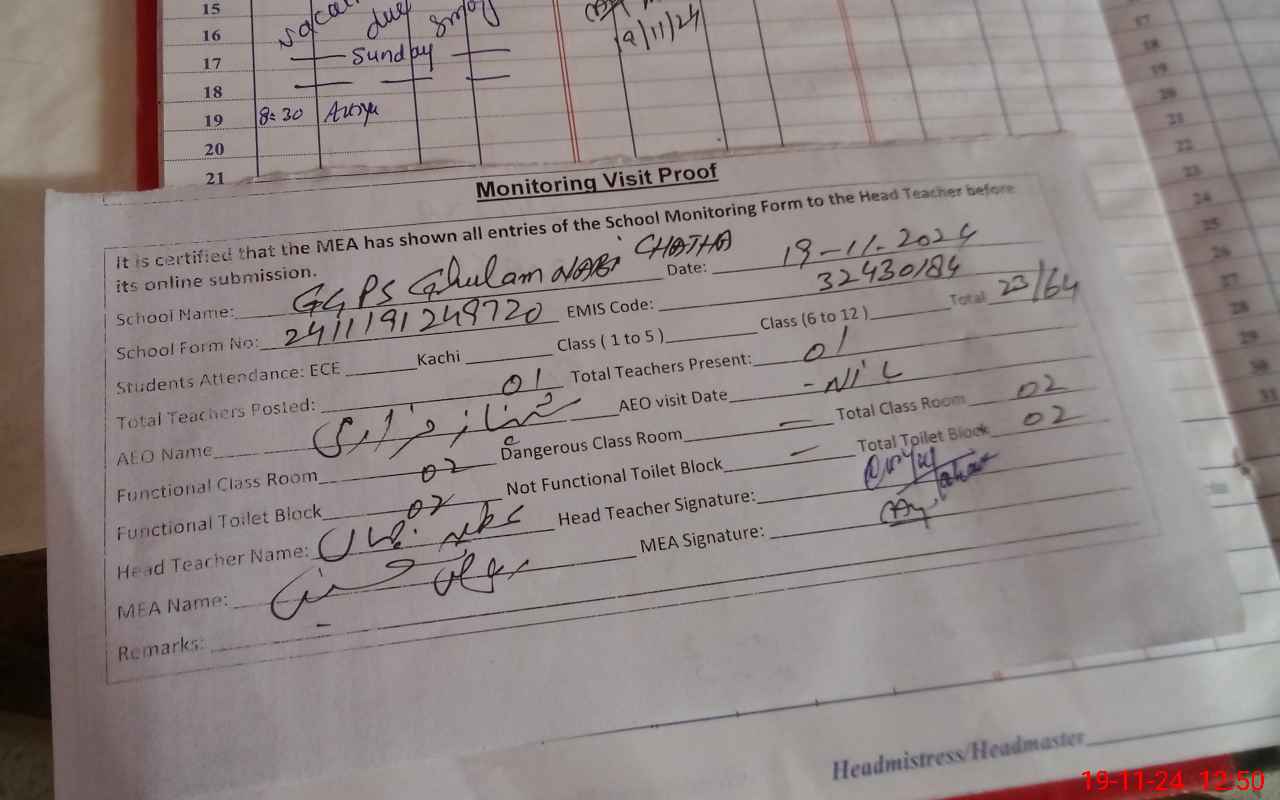 15
16 due smog
17 Sunday 19/11/24
18
19 8:30
20
21
Monitoring Visit Proof
It is certified that the MEA has shown all entries of the School Monitoring Form to the Head Teacher before
its online submission.
School Name: GGPS Ghulam NABi CHATHA Date: 19-11-2024
School Form No: 2411191249720 EMIS Code: 32430184
Students Attendance: ECE Kachi Class ( 1 to 5 ) Class (6 to 12 ) Total 23/64
Total Teachers Posted: 01 Total Teachers Present: 01
AEO Name شہناز مزاری AEO visit Date - NiL
Functional Class Room 02 Dangerous Class Room — Total Class Room 02
Functional Toilet Block 02 Not Functional Toilet Block — Total Toilet Block 02
Head Teacher Name: Head Teacher Signature:
MEA Name: MEA Signature:
Remarks: -
17
18
19
20
21
22
23
24
25
26
27
28
29
30
31
Headmistress/Headmaster
19-11-24 12:50